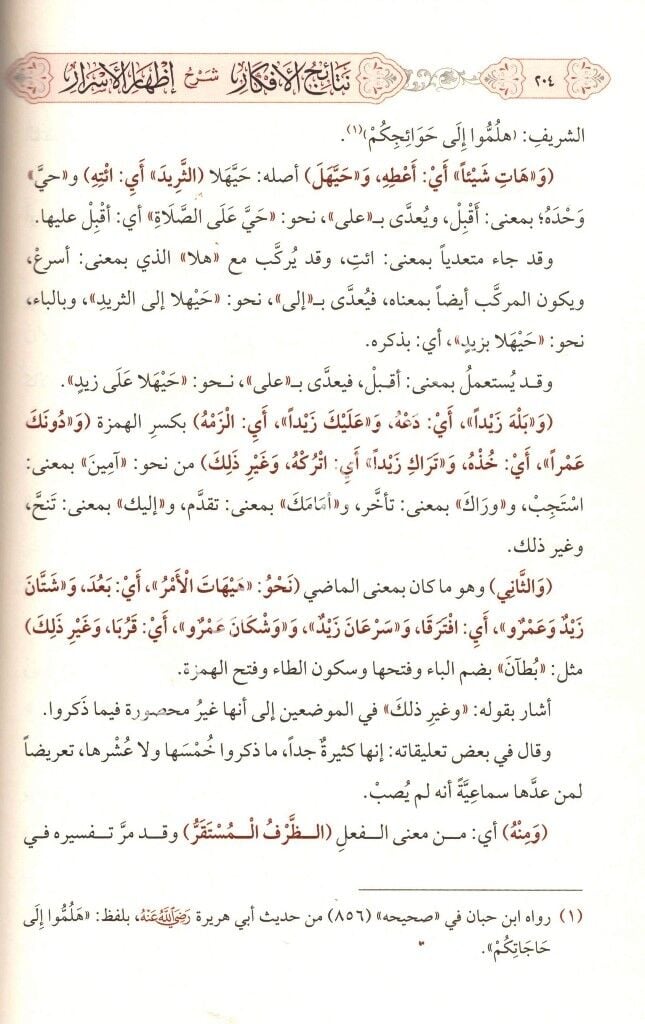 ٢٠٤ نَتَائِجُ الأَفْكَارِ شَرْحُ إِظْهَارِ الأَسْرَارِ
الشريفِ: «هلُمُّوا إلَى حَوَائِجِكُمْ»(١).
(وَ«هَاتِ شَيْئاً» أَيْ: أَعْطِهِ، وَ«حَيَّهَلَ) أصله: حَيَّهَلا (الثَّرِيدَ» أَيِ: ائْتِهِ) و«حيَّ»
وَحْدَهُ؛ بمعنى: أَقْبِلْ، ويُعدَّى بـ«على»، نحو: «حَيَّ عَلَى الصَّلَاةِ» أي: أقْبِل عليها.
وقد جاء متعدياً بمعنى: ائتِ، وقد يُركَّب مع «هلا» الذي بمعنى: أسرعْ،
ويكون المركَّب أيضاً بمعناه، فيُعدَّى بـ«إلى»، نحو: «حَيْهلا إلى الثريدِ»، وبالباء،
نحو: «حَيْهَلا بزيدٍ»، أي: بذكره.
وقـد يُستعملُ بمعنى: أقـبلْ، فيعدَّى بـ«على»، نـحو: «حَيْهلا عَلَى زيدٍ».
(وَ«بَلْهَ زَيْداً»، أَيْ: دَعْهُ، وَ«عَلَيْكَ زَيْداً»، أَيِ: الْزَمْهُ) بكسرِ الهمزة (وَ«دُونَكَ
عَمْراً»، أَيْ: خُذْهُ، وَ«تَرَاكِ زَيْداً» أَيِ: اتْرُكْهُ، وَغَيْرِ ذَلِكَ) من نحو: «آمِينَ» بمعنى:
اسْتَجِبْ، و«وراكَ» بمعنى: تأخَّر، و«أَمَامَكَ» بمعنى: تقدَّم، و«إليك» بمعنى: تَنحَّ،
وغير ذلك.
(وَالثَّانِي) وهو ما كان بمعنى الماضي (نَحْوُ: «هَيْهَاتَ الْأَمْرُ»، أَيْ: بَعُدَ، وَ«شَتَّانَ
زَيْدٌ وَعَمْرٌو»، أَيِ: افْتَرَقَا، وَ«سَرْعَانَ زَيْدٌ»، وَ«وَشْكَانَ عَمْرٌو»، أَيْ: قَرُبَا، وَغَيْرِ ذَلِكَ)
مثل: «بُطآنَ» بضم الباء وفتحها وسكون الطاء وفتح الهمزة.
أشار بقوله: «وغيرِ ذلكَ» في الموضعين إلى أنها غيرُ محصورة فيما ذَكروا.
وقال في بعض تعليقاته: إنها كثيرةٌ جداً، ما ذكروا خُمْسَها ولا عُشْرها، تعريضاً
لمن عدَّها سماعِيَّةً أنه لم يُصبْ.
(وَمِنْهُ) أي: مـن معنى الـفعلِ (الـظَّرْفُ الْـمُسْتَقَرُّ) وقـد مرَّ تـفسيره فـي
(١) رواه ابن حبان في «صحيحه» (٨٥٦) من حديث أبي هريرة رَضِيَ اللَّهُ عَنْهُ، بلفظ: «هَلُمُّوا إِلَى
حَاجَاتِكُمْ».